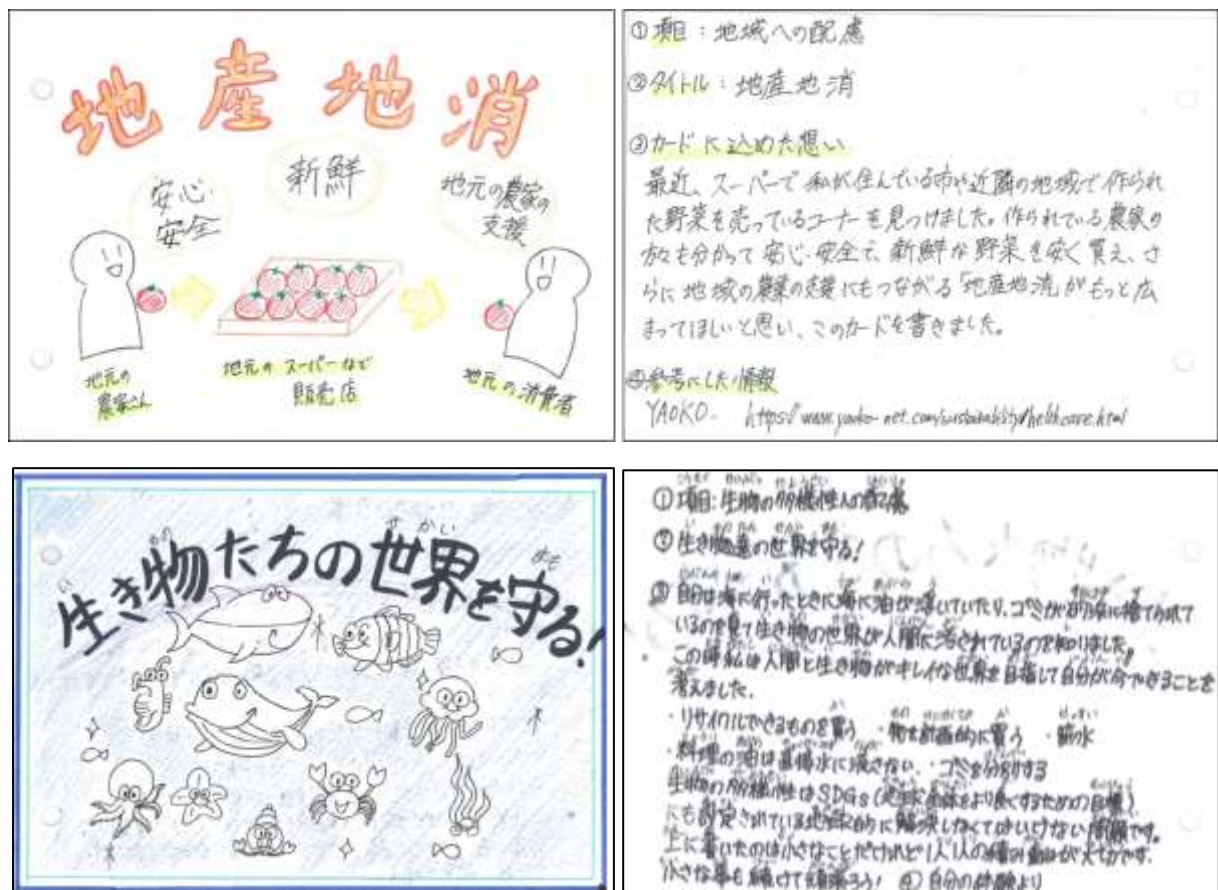 地産地消
安心・
安全
新鮮
地元の農家の
支援
地元の
農家さん
地元の スーパーなど
販売店
地元の消費者
①項目：地域への配慮
②タイトル：地産地消
③カードに込めた想い
最近、スーパーで私が住んでいる市や近隣の地域で作られ
た野菜を売っているコーナーを見つけました。作られている農家の
方々も分かって安心・安全で、新鮮な野菜を安く買え、さ
らに地域の農業の支援にもつながる「地産地消」がもっと広
まってほしいと思い、このカードを書きました。
④参考にした情報
YAOKO
生き物たちの世界を守る!
い もの せかい まも
①項目:生物の多様性への配慮
②生き物達の世界を守る!
③自分は海に行ったときに海に油が浮いていたり、ゴミが に捨てられて
いるのを見て生き物の世界が人間に汚されているのを知りました。
この時私は人間と生き物がキレイな世界を目指して自分が今できることを
考えました.
・リサイクルできるものを買う ・物を計画的に買う ・節水
・料理の油は直接水に流さない. ・ゴミを分別する
生物の多様性はSDGs(地球全体をより良くするための目標)
にも設定されている地球的に解決しなくてはいけない問題です。
上に書いたのは小さなことだけれど1人1人の積み重ねが大切です.
小さな事も続けて頑張ろう! ④自分の体験より